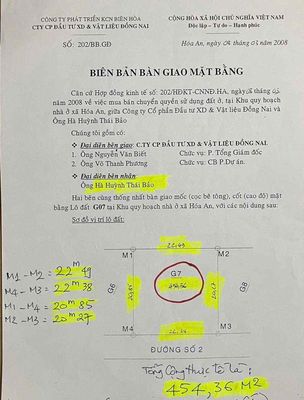 CÔNG TY PHÁT TRIỂN KCN BIÊN HÒA
CTY CP ĐẦU TƯ XD & VẬT LIỆU ĐỒNG NAI
SỐ: 202/BB.GĐ
CỘNG HÒA XÃ HỘI CHỦ NGHĨA VIỆT NAM
Độc lập – Tự do – Hạnh phúc
Hóa An, ngày 04 tháng 03 năm 2008
BIÊN BẢN BÀN GIAO MẶT BẰNG
Căn cứ Hợp đồng kinh tế số: 202/HĐKT-CNNĐ.HA, ngày 08 tháng 03
năm 2008 về việc mua bán chuyển quyền sử dụng đất ở, tại Khu quy hoạch
nhà ở xã Hóa An, giữa Công ty Cổ phần Đầu tư XD & Vật liệu Đồng Nai và
Ông Hà Huỳnh Thái Bảo
Chúng tôi gồm có:
Đại diện bên giao: CTY CP ĐẦU TƯ XD & VẬT LIỆU ĐỒNG NAI
1. Ông Nguyễn Văn Biết Chức vụ: P. Tổng Giám đốc
2. Ông Võ Thanh Phương Chức vụ: CB P.Dự án.
Đại diện bên nhận
Ông Hà Huỳnh Thái Bảo
Hai bên cùng thống nhất bàn giao mốc (cọc bê tông), cốt (cao độ) mặt
bằng Lô đất G07 tại Khu quy hoạch nhà ở xã Hóa An, với các nội dung sau:
Sơ đồ vị trí lô đất:
22,49
M1
M2
M1 – M2 = 22m 49
M4 – M3 = 22m 38
M1 – M4 = 20m 85
M2 – M3 = 20m 27
G6
20,85
G7
454,36
20,27
G8
M4
22,38
M3
ĐƯỜNG SỐ 2
Tổng Công thực tế là:
454,36 M2